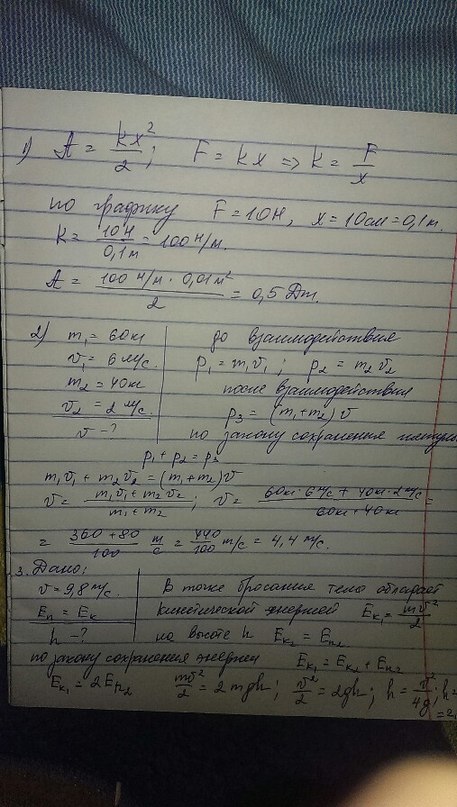 1) A = kx²/2; F = kx => k = F/x
по графику F = 10Н, x = 10см = 0,1м.
k = 10Н/0,1м = 100 Н/м.
A = 100 Н/м · 0,01м²/2 = 0,5 Дж.
2) m₁ = 60кг до взаимодействия
v₁ = 6 м/с. p₁ = m₁v₁; p₂ = m₂v₂
m₂ = 40кг после взаимодействия
v₂ = 2 м/с. p₃ = (m₁+m₂)v
v - ? по закону сохранения
p₁ + p₂ = p₃
m₁v₁ + m₂v₂ = (m₁+m₂)v
v = m₁v₁ + m₂v₂/m₁+m₂; v = 60кг·6м/с + 40кг·2м/с/60кг+40кг =
= 360+80/100 м/с = 440/100 м/с = 4,4 м/с.
3. Дано:
v = 9,8 м/с. В точке бросания тело обладает
Eп = Eк кинетической энергией Eк₁ = mv²/2
h - ? на высоте h Eк₂ = Eп₂
по закону сохранения энергии Eк₁ = Eк₂ + Eп₂
Eк₁ = 2Eп₂ mv²/2 = 2mgh; v²/2 = 2gh; h = v²/4g; h=